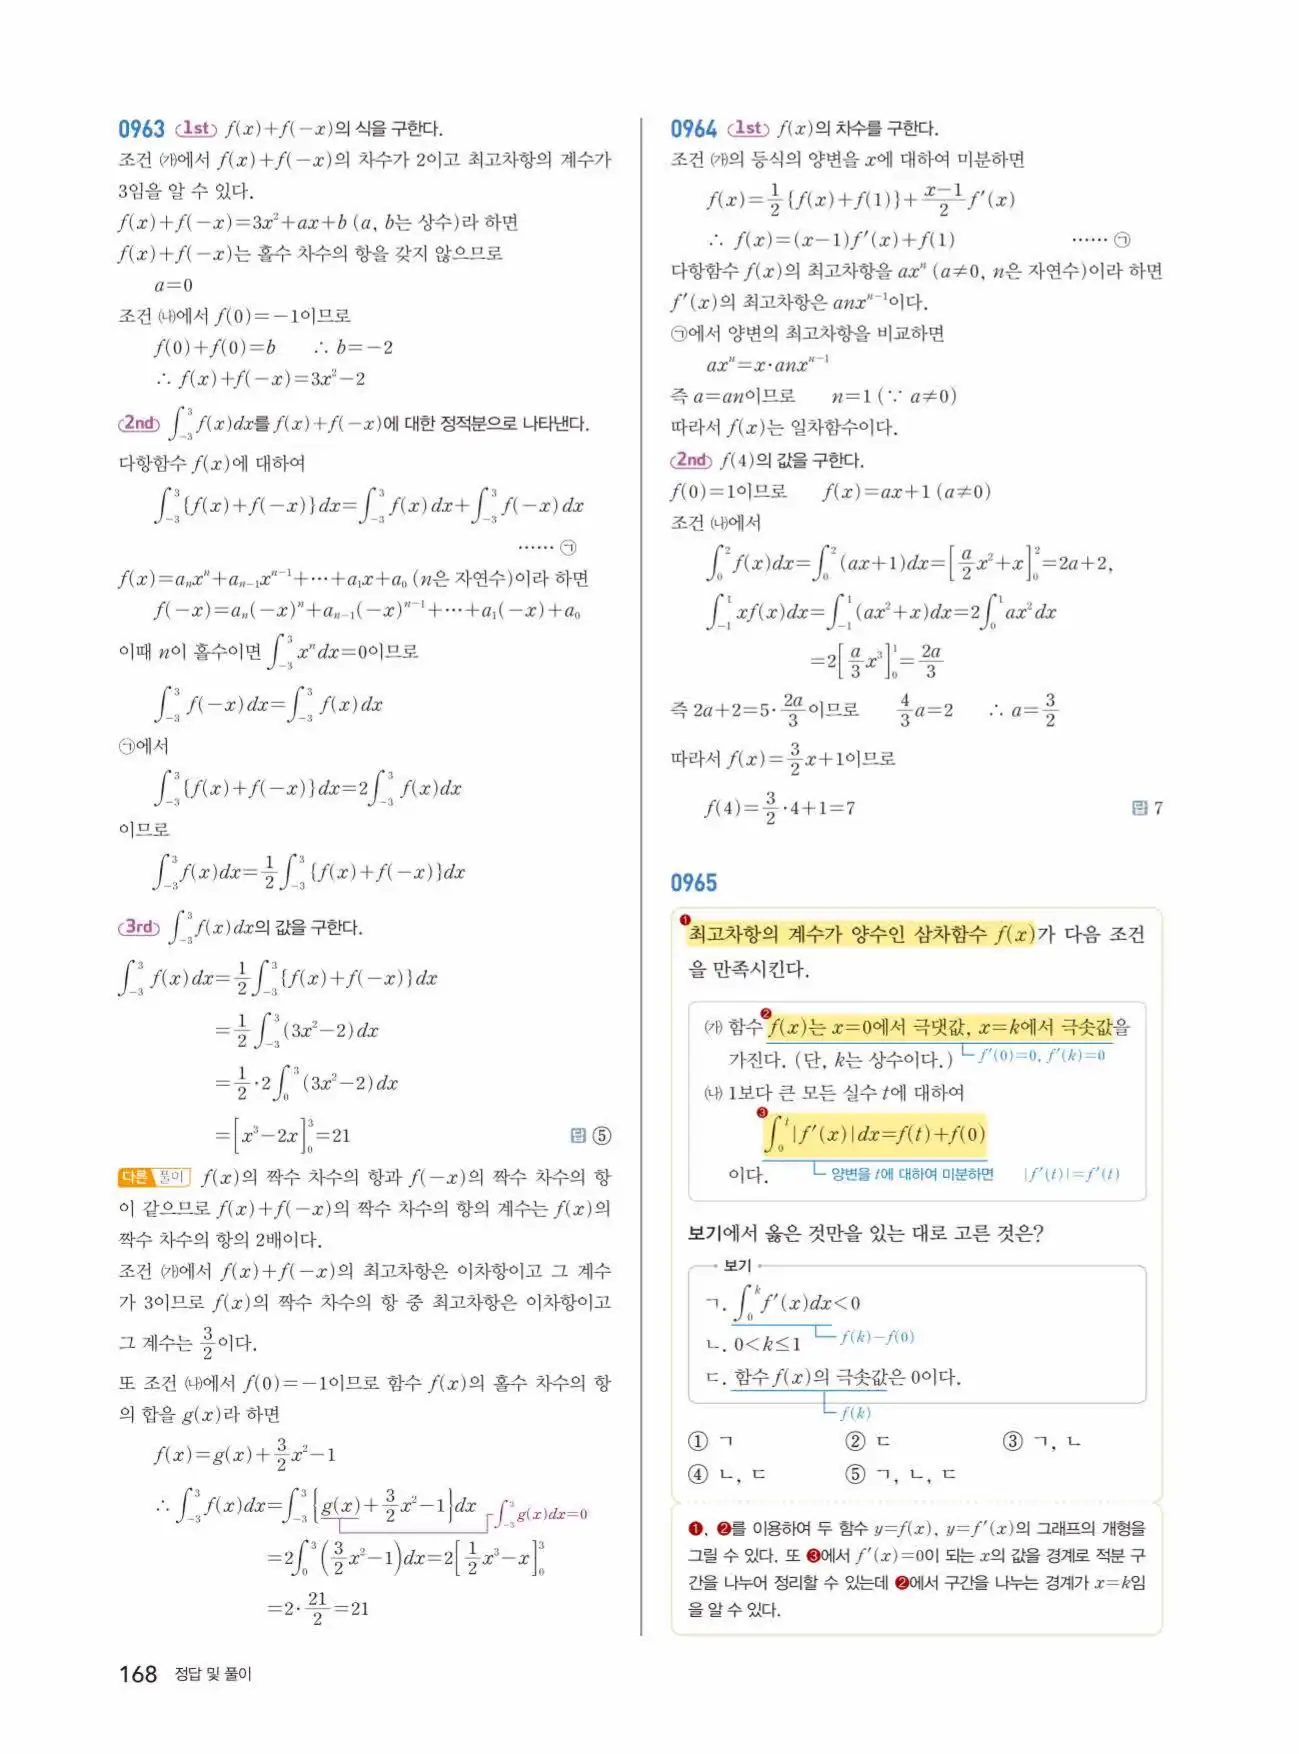 0963 1st f(x)+f(-x)의 식을 구한다.
조건 ㈎에서 f(x)+f(-x)의 차수가 2이고 최고차항의 계수가
3임을 알 수 있다.
f(x)+f(-x)=3x²+ax+b (a, b는 상수)라 하면
f(x)+f(-x)는 홀수 차수의 항을 갖지 않으므로
a=0
조건 ㈏에서 f(0)=-1이므로
f(0)+f(0)=b ∴ b=-2
∴ f(x)+f(-x)=3x²-2
2nd ∫₋₃³ f(x)dx를 f(x)+f(-x)에 대한 정적분으로 나타낸다.
다항함수 f(x)에 대하여
∫₋₃³ {f(x)+f(-x)}dx=∫₋₃³ f(x)dx+∫₋₃³ f(-x)dx
…… ㉠
f(x)=aₙxⁿ+aₙ₋₁xⁿ⁻¹+⋯+a₁x+a₀ (n은 자연수)이라 하면
f(-x)=aₙ(-x)ⁿ+aₙ₋₁(-x)ⁿ⁻¹+⋯+a₁(-x)+a₀
이때 n이 홀수이면 ∫₋₃³ xⁿdx=0이므로
∫₋₃³ f(-x)dx=∫₋₃³ f(x)dx
㉠에서
∫₋₃³ {f(x)+f(-x)}dx=2∫₋₃³ f(x)dx
이므로
∫₋₃³ f(x)dx=1/2∫₋₃³ {f(x)+f(-x)}dx
3rd ∫₋₃³ f(x)dx의 값을 구한다.
∫₋₃³ f(x)dx=1/2∫₋₃³ {f(x)+f(-x)}dx
=1/2∫₋₃³ (3x²-2)dx
=1/2·2∫₀³ (3x²-2)dx
=[x³-2x]₀³=21 답 ⑤
다른 풀이 f(x)의 짝수 차수의 항과 f(-x)의 짝수 차수의 항
이 같으므로 f(x)+f(-x)의 짝수 차수의 항의 계수는 f(x)의
짝수 차수의 항의 2배이다.
조건 ㈎에서 f(x)+f(-x)의 최고차항은 이차항이고 그 계수
가 3이므로 f(x)의 짝수 차수의 항 중 최고차항은 이차항이고
그 계수는 3/2이다.
또 조건 ㈏에서 f(0)=-1이므로 함수 f(x)의 홀수 차수의 항
의 합을 g(x)라 하면
f(x)=g(x)+3/2x²-1
∴ ∫₋₃³ f(x)dx=∫₋₃³ {g(x)+3/2x²-1}dx ∫₋₃³ g(x)dx=0
=2∫₀³ (3/2x²-1)dx=2[1/2x³-x]₀³
=2·21/2=21
168 정답 및 풀이
0964 1st f(x)의 차수를 구한다.
조건 ㈎의 등식의 양변을 x에 대하여 미분하면
f(x)=1/2{f(x)+f(1)}+(x-1)/2 f′(x)
∴ f(x)=(x-1)f′(x)+f(1) …… ㉠
다항함수 f(x)의 최고차항을 axⁿ (a≠0, n은 자연수)이라 하면
f′(x)의 최고차항은 anxⁿ⁻¹이다.
㉠에서 양변의 최고차항을 비교하면
axⁿ=x·anxⁿ⁻¹
즉 a=an이므로 n=1 (∵ a≠0)
따라서 f(x)는 일차함수이다.
2nd f(4)의 값을 구한다.
f(0)=1이므로 f(x)=ax+1 (a≠0)
조건 ㈏에서
∫₀² f(x)dx=∫₀² (ax+1)dx=[a/2x²+x]₀²=2a+2,
∫₋₁¹ xf(x)dx=∫₋₁¹ (ax²+x)dx=2∫₀¹ ax²dx
=2[a/3x³]₀¹=2a/3
즉 2a+2=5·2a/3이므로 4/3a=2 ∴ a=3/2
따라서 f(x)=3/2x+1이므로
f(4)=3/2·4+1=7 답 7
0965
❶ 최고차항의 계수가 양수인 삼차함수 f(x)가 다음 조건
을 만족시킨다.
㈎ 함수 ❷ f(x)는 x=0에서 극댓값, x=k에서 극솟값을
가진다. (단, k는 상수이다.) f′(0)=0, f′(k)=0
㈏ 1보다 큰 모든 실수 t에 대하여
❸ ∫₀ᵗ |f′(x)|dx=f(t)+f(0)
이다. 양변을 t에 대하여 미분하면 |f′(t)|=f′(t)
보기에서 옳은 것만을 있는 대로 고른 것은?
보기
ㄱ. ∫₀ᵏ f′(x)dx<0
f(k)-f(0)
ㄴ. 0<k≤1
ㄷ. 함수 f(x)의 극솟값은 0이다.
f(k)
① ㄱ ② ㄷ ③ ㄱ, ㄴ
④ ㄴ, ㄷ ⑤ ㄱ, ㄴ, ㄷ
❶, ❷를 이용하여 두 함수 y=f(x), y=f′(x)의 그래프의 개형을
그릴 수 있다. 또 ❸에서 f′(x)=0이 되는 x의 값을 경계로 적분 구
간을 나누어 정리할 수 있는데 ❷에서 구간을 나누는 경계가 x=k임
을 알 수 있다.